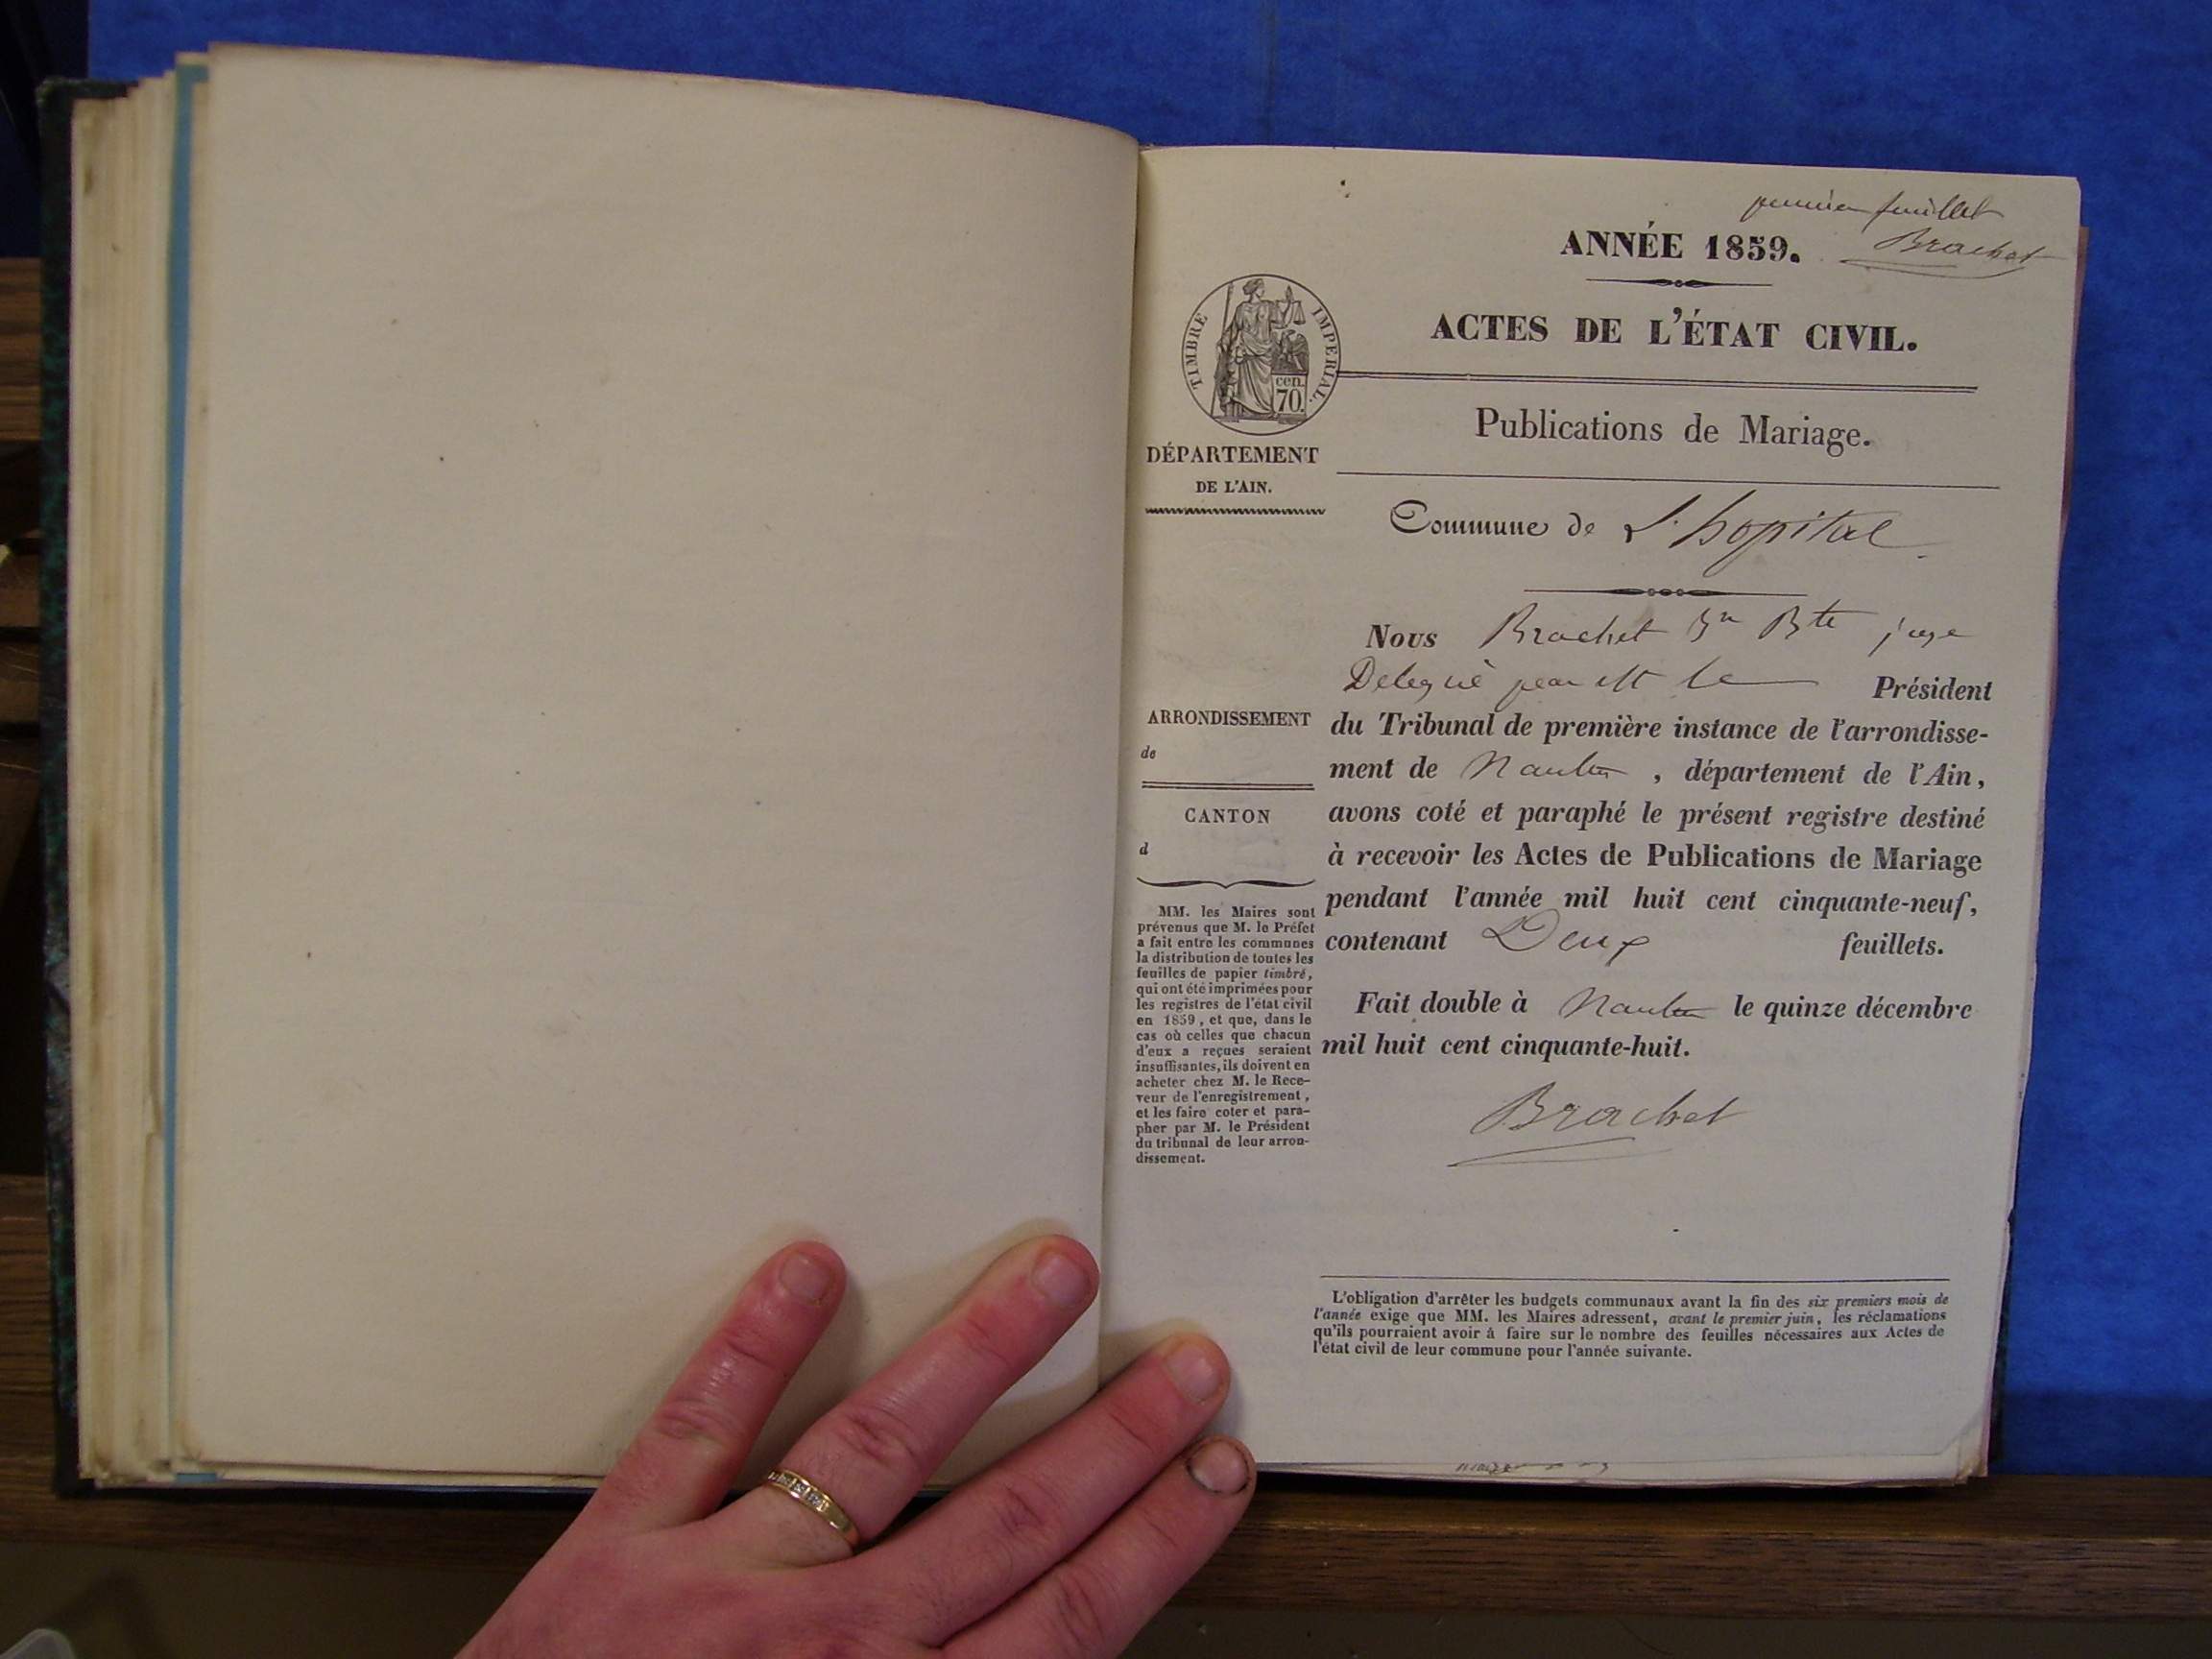 premier feuillet
Brachet
ANNÉE 1859.
ACTES DE L'ÉTAT CIVIL.
TIMBRE IMPERIAL.
cen.
70.
Publications de Mariage.
DÉPARTEMENT
DE L'AIN.
Commune de L'hopital
Nous Brachet Bte juge
Delegué par Mr le Président
du Tribunal de première instance de l'arrondisse-
ment de Nantua, département de l'Ain,
avons coté et paraphé le présent registre destiné
à recevoir les Actes de Publications de Mariage
pendant l'année mil huit cent cinquante-neuf,
contenant Deux feuillets.
Fait double à Nantua le quinze décembre
mil huit cent cinquante-huit.
Brachet
ARRONDISSEMENT
de
CANTON
d
MM. les Maires sont
prévenus que M. le Préfet
a fait entre les communes
la distribution de toutes les
feuilles de papier timbré,
qui ont été imprimées pour
les registres de l'état civil
en 1859, et que, dans le
cas où celles que chacun
d'eux a reçues seraient
insuffisantes, ils doivent en
acheter chez M. le Rece-
veur de l'enregistrement,
et les faire coter et para-
pher par M. le Président
du tribunal de leur arron-
dissement.
L'obligation d'arrêter les budgets communaux avant la fin des six premiers mois de
l'année exige que MM. les Maires adressent, avant le premier juin, les réclamations
qu'ils pourraient avoir à faire sur le nombre des feuilles nécessaires aux Actes de
l'état civil de leur commune pour l'année suivante.